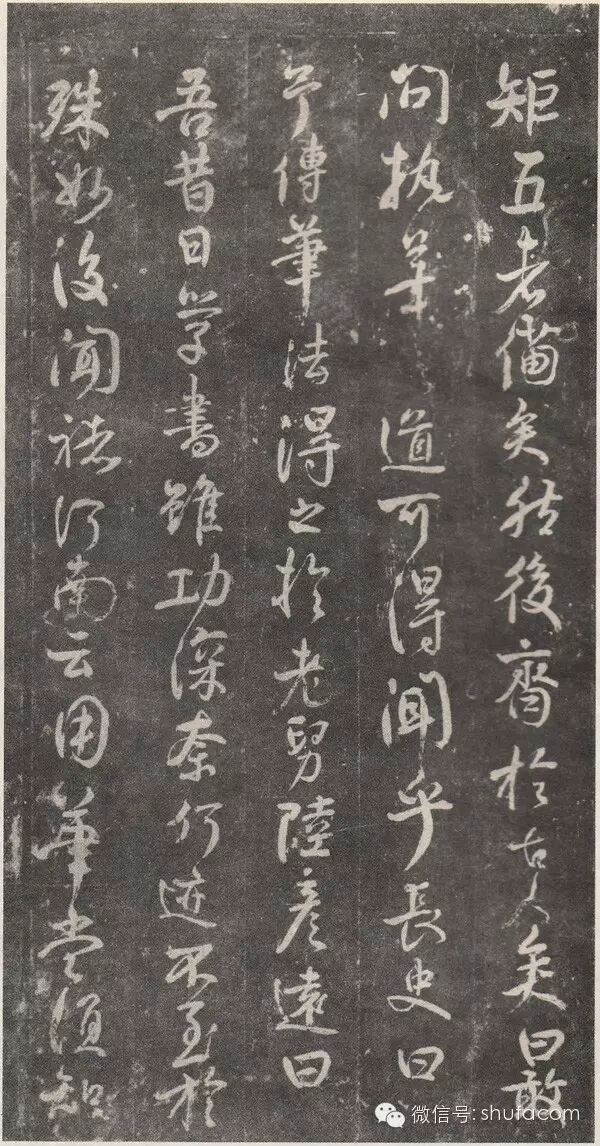 矩五者備矣然後齊於古人矣曰敢
問執筆道可得聞乎長史曰
予傳筆法得之於老舅陸彦遠曰
吾昔日学書雖功深奈何迹不至於
殊妙後聞褚河南云用筆當須知
微信号: shufacom